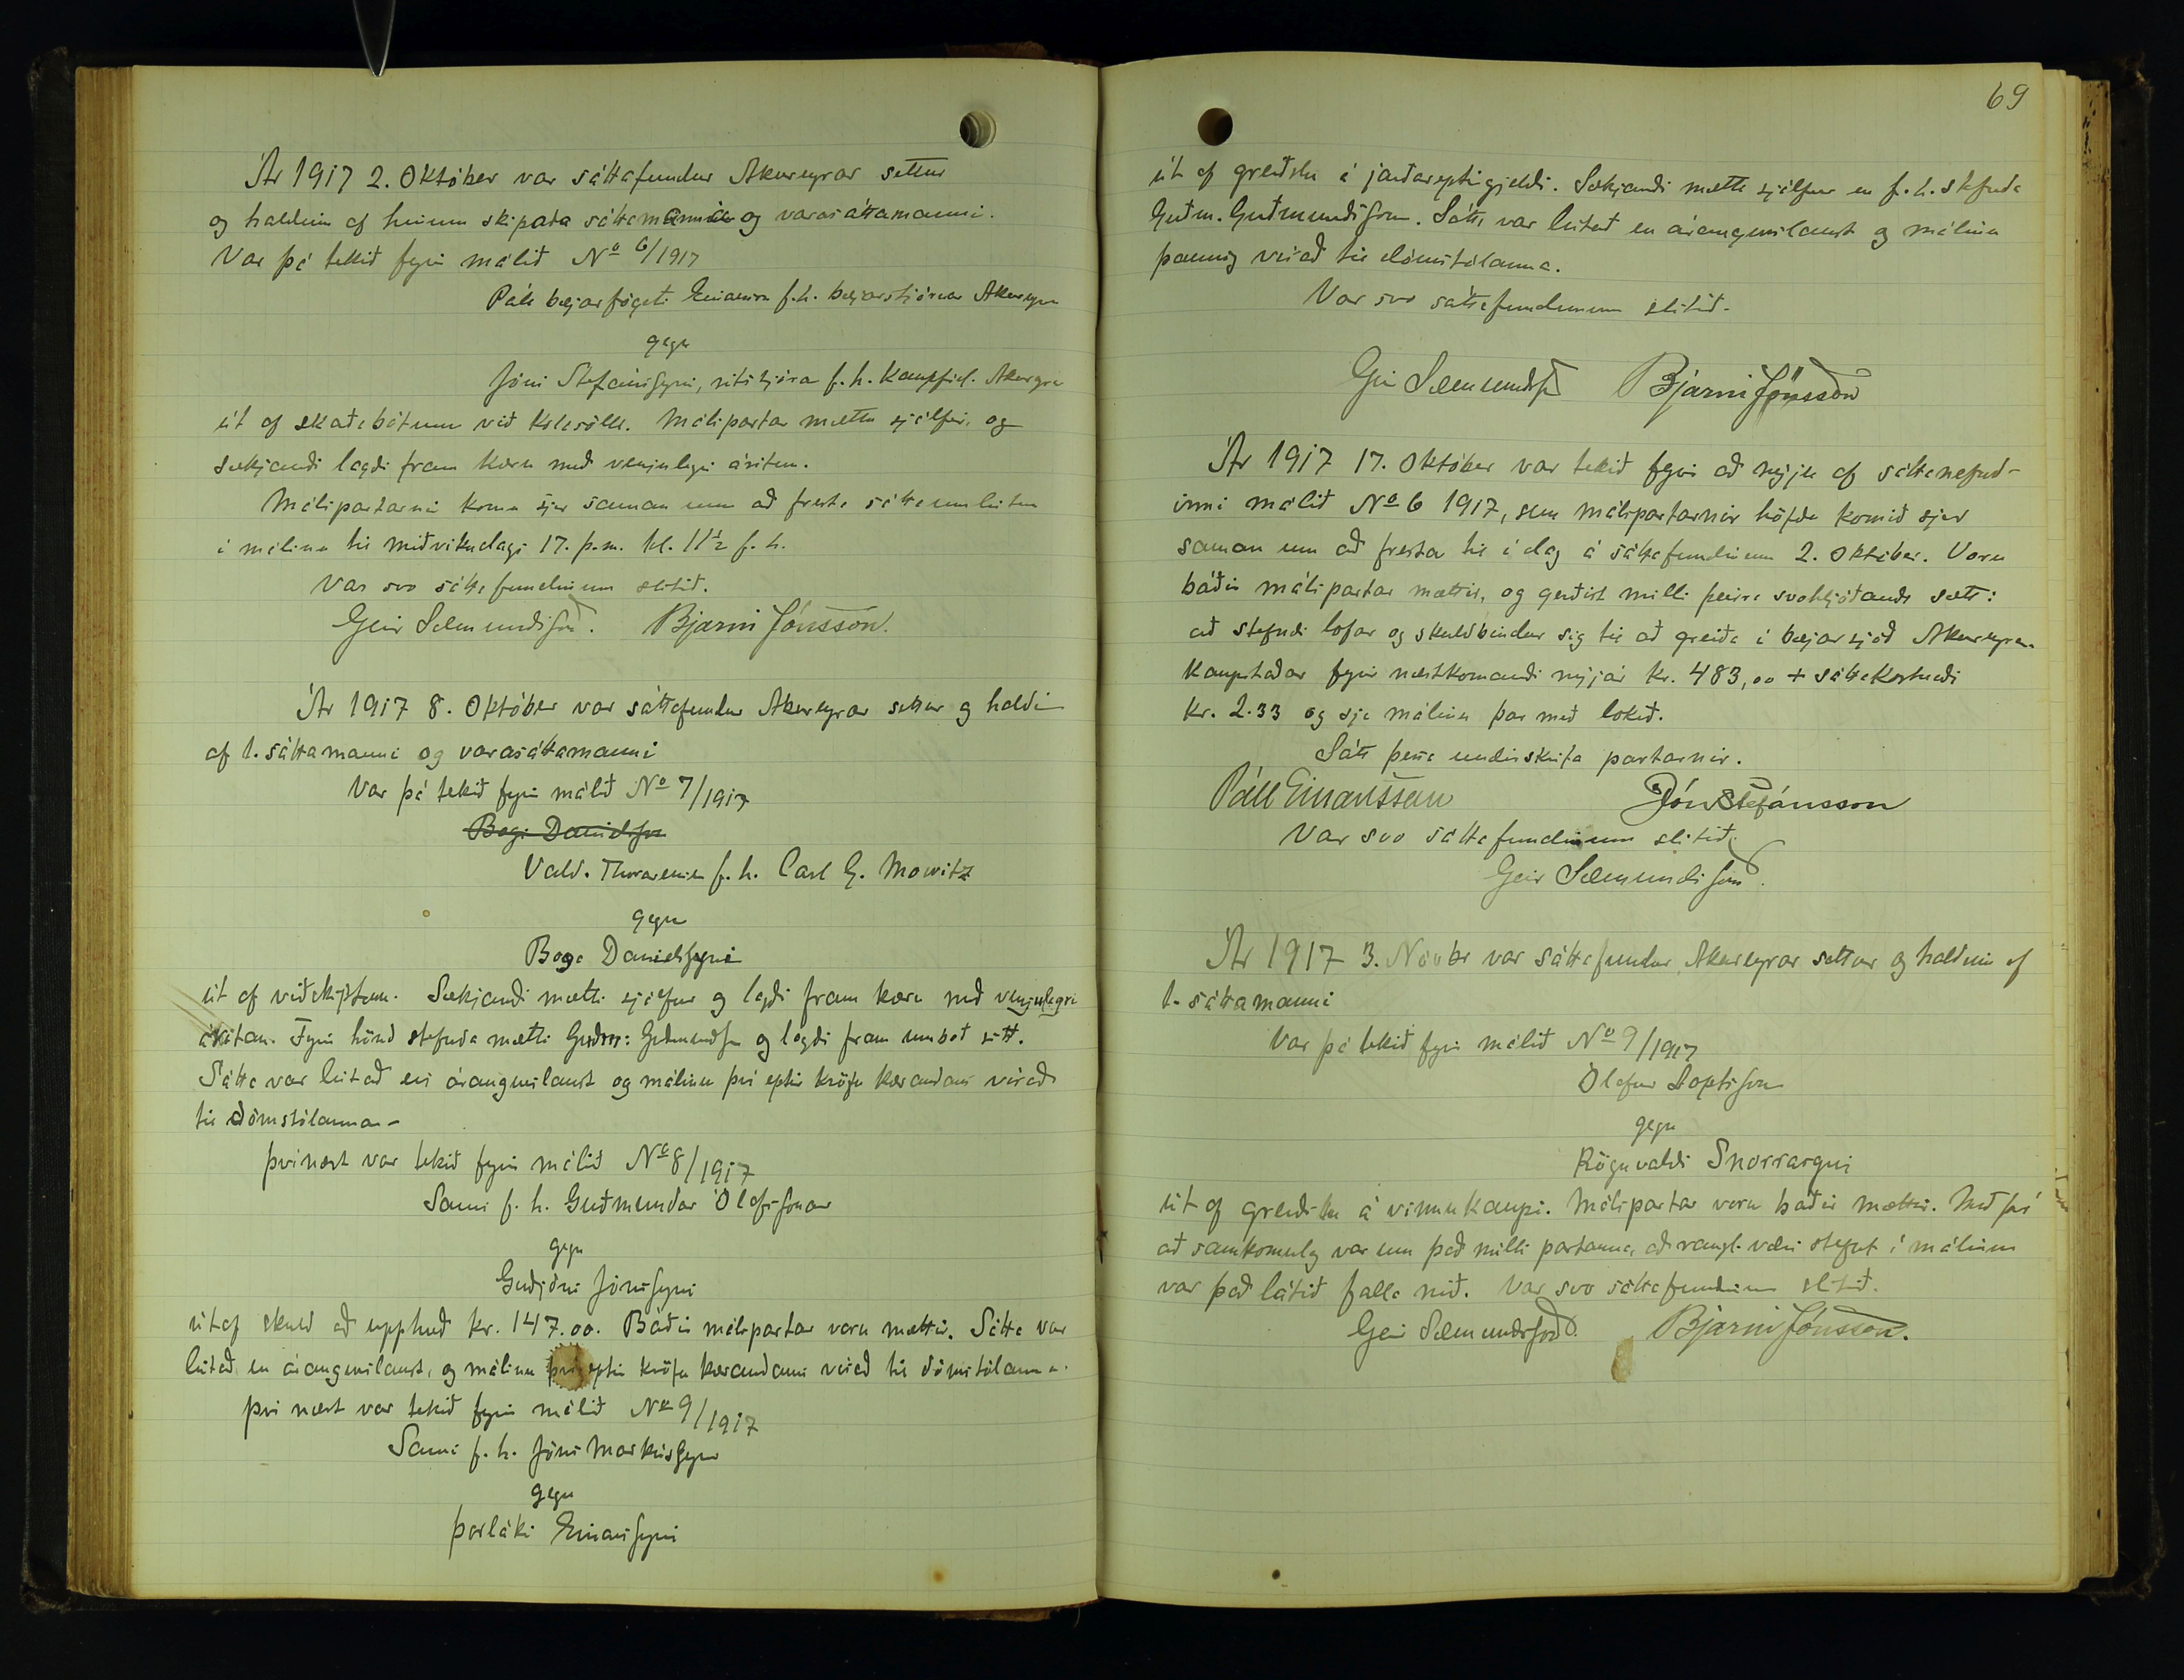 Ár 1917 2. Október var sáttafundur Akureyrar settur
og haldinn af hinum skipaða sáttamanni og varasáttamanni.
Var þá tekið fyrir málið No 6/1917
Páll bæjarfógeti Einarsson f.h. bæjarstjórnar Akureyrar
gegn
Jóni Stefánssyni, ritstjóra f.h. Kaupfél. Akureyrar
út af skaðabótum við kolasölu. Málspartar mættu sjálfir, og
sækjandi lagði fram kæru með venjulegri áritun.
Málspartarnir komu sjer saman um að fresta sáttaumleitun
í málinu til miðvikudags 17. þ.m. kl. 11½ f.h.
Var svo sáttafundinum slitið.
Geir Sæmundsson. Bjarni Jónsson.
Ár 1917 8. Október var sáttafundur Akureyrar settur og haldinn
af 1. sáttamanni og varasáttamanni
Var þá tekið fyrir málið No 7/1917
Bogi Daníelsson
Vald. Thorarensen f.h. Carl G. Mowitz
gegn
Boga Daníelssyni
út af viðskiptum. Sækjandi mætti sjálfur og lagði fram kæru með venjulegri
áritan. Fyrir hönd stefnda mætti Guðm: Guðmundss. og lagði fram umboð sitt.
Sátta var leitað en árangurslaust og málinu því eptir kröfu kærandans vísað
til dómstólanna-
Þvínæst var tekið fyrir málið No 8/1917
Sami f.h. Guðmundar Ólafssonar
gegn
Guðjóni Jónssyni
út af skuld að upphæð kr. 147.00. Báðir málspartar voru mættir. Sátta var
leitað en árangurslaust, og málinu því eptir kröfu kærandans vísað til dómstólanna.
Því næst var tekið fyrir málið No 9/1917
Sami f.h. Jóns Markússonar
gegn
Þorláki Einarssyni
69
út af greiðslu á jarðareptirgjaldi. Sækjandi mætti sjálfur en f.h. stefnda
Guðm. Guðmundsson. Sátta var leitað en árangurslaust og málinu
þannig vísað til dómstólanna.
Var svo sáttafundinum slitið.
Geir Sæmundss. Bjarni Jónsson
Ár 1917 17. Október var tekið fyrir að nýju af sáttanefnd-
inni málið No 6 1917, sem málspartarnir höfðu komið sjer
saman um að fresta til í dag á sáttafundinum 2. Október. Voru
báðir málspartar mættir, og gerðist milli þeirra svohljóðandi sátt:
að stefndi lofar og skuldbindur sig til að greiða í bæjarsjóð Akureyrar
kaupstaðar fyrir næstkomandi nýjár kr. 483,00 + sáttakostnaði
kr. 2.33 og sje málinu þar með lokið.
Sátt þessa undirskrifa partarnir.
Páll Einarsson Jón Stefánsson
Var svo sáttafundinum slitið.
Geir Sæmundsson.
Ár 1917 3. Novbr var sáttafundur Akureyrar settur og haldinn af
1. sáttamanni
Var þá tekið fyrir málið No 9/1917
Ólafur Loptsson
gegn
Rögnvaldi Snorrasyni
út af greiðslu á vinnukaupi. Málspartar voru báðir mættir. Með því
að samkomulag var um það milli partanna, að rangt væri stefnt í málinu
var það látið falla nið. Var svo sáttafundinum slitið.
Geir Sæmundsson. Bjarni Jónsson.